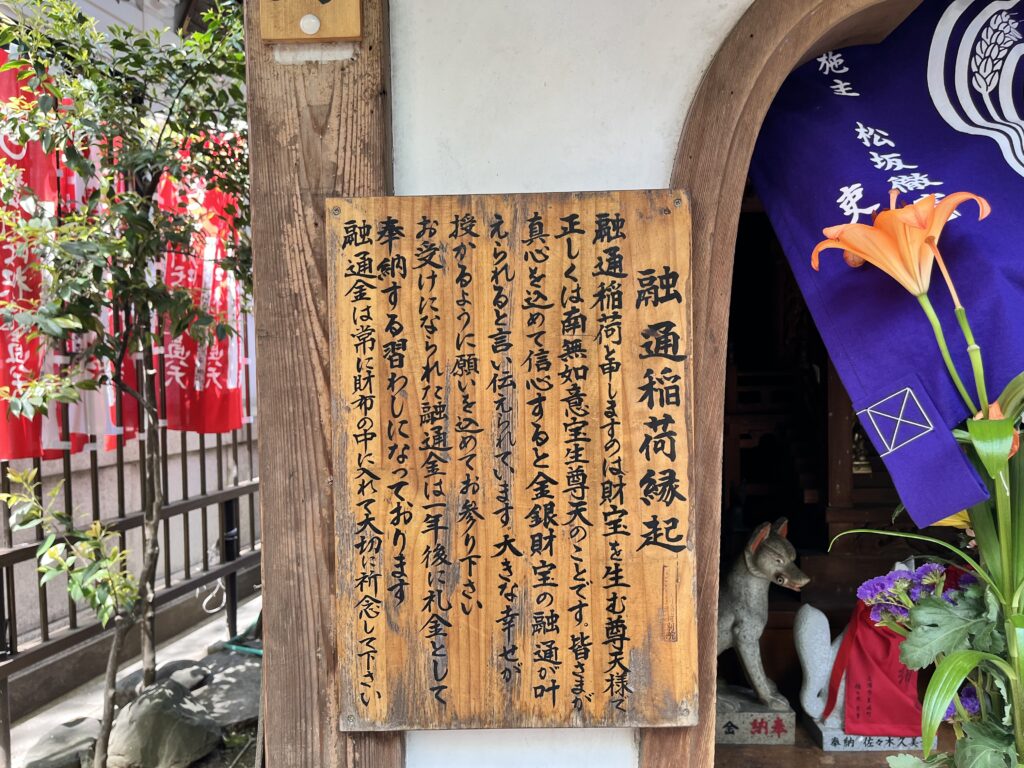 融通稲荷縁起
融通稲荷と申しますのは財宝を生む尊天様で
正しくは南無如意宝生尊天のことです。皆さまが
真心を込めて信心すると金銀財宝の融通が叶
えられると言い伝えられています。大きな幸せが
授かるように願いを込めてお参り下さい
お受けになられた融通金は一年後に礼金として
奉納する習わしになっております
融通金は常に財布の中に入れて大切に祈念して下さい
施主
松坂徹
奉納
奉納 佐々木久美
真天